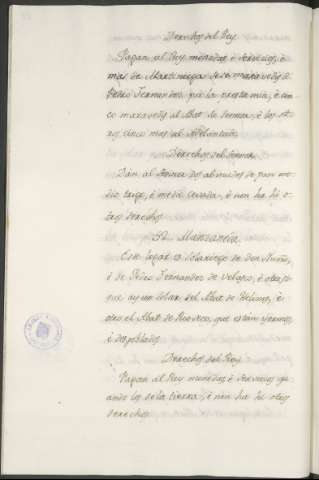 Derechos del Rey
Pagan al Rey monedas é servicios, é
mas de Martiniega sesenta maravedis á
Pedro Fernandez por la
co maravedis al Abat de é los ot
ros cinco mas al Adelantado.
Derechos del Señor
Dan al Señor dos almudes de pan me
dio trigo, é medio cevada, é non ha hi o
tros derechos
Manzanedo
Este logar es solariego de don Nuño,
é de Pedro Fernandez de Velasco, é otrosi
que ay un solar del Abat de é
otro el Abat de Rioseco, que están yermos,
é despoblados
Derechos del Rey
Pagan al Rey monedas é servicios qu
ando los de la tierra, é non ha hi otros
derechos